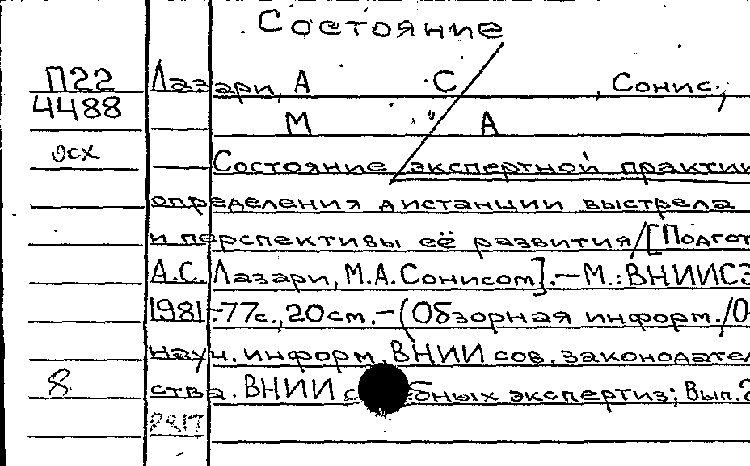 Состояние
П22 Лазари, А С , Сонис,
4488 М А
осх Состояние экспертной практик
определения дистанции выстрела
и перспективы её развития/[Подгот
А.С. Лазари, М.А. Сонисом].—М.: ВНИИСЭ
1981.-77с., 20см.-(Обзорная информ./О
науч. информ. ВНИИ сов. законодател
8 ства. ВНИИ бных экспертиз; Вып. 2